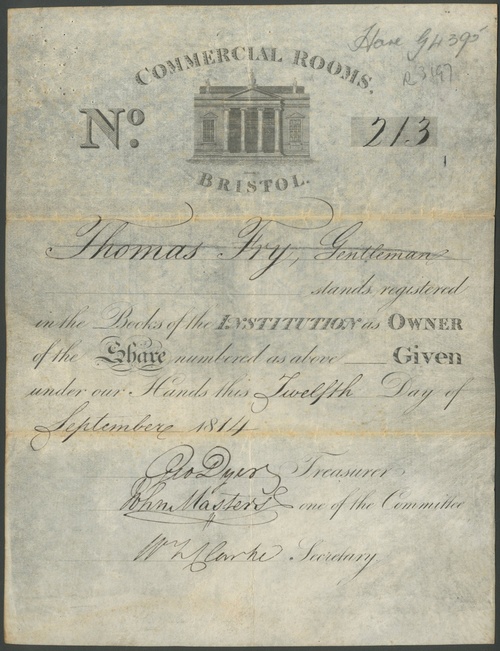 Hose G4395
R3197
COMMERCIAL ROOMS,
No. 213
BRISTOL.
Thomas Fry, Gentleman
stands registered
in the Books of the INSTITUTION as OWNER
of the Share numbered as above Given
under our Hands this Twelfth Day of
September 1814
Geo Dyer Treasurer
John Masters one of the Committee
Wm L Clarke Secretary